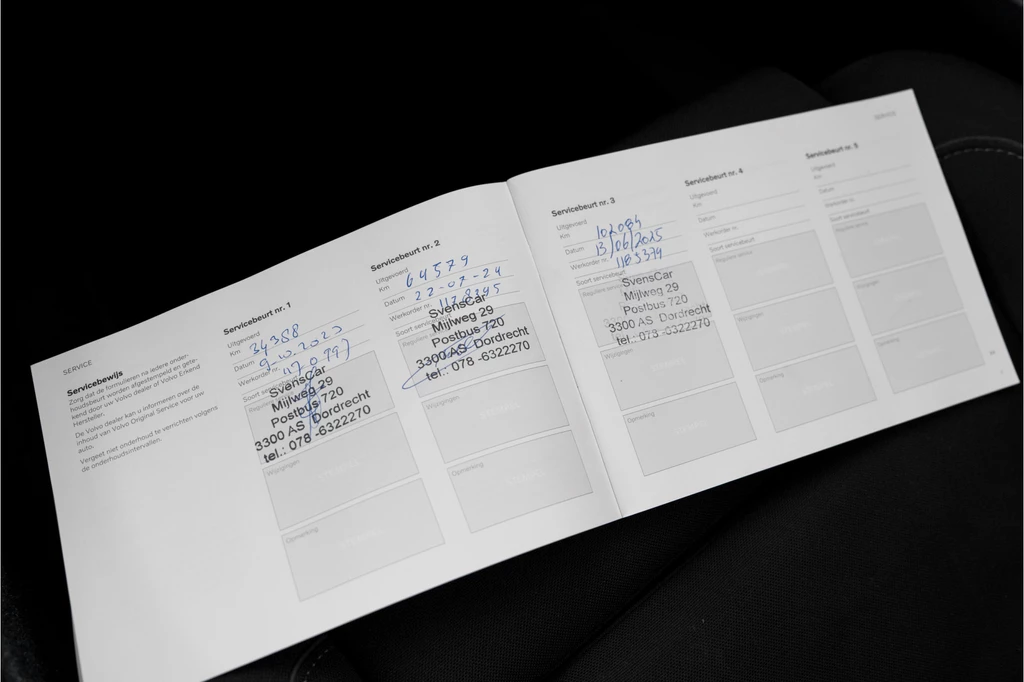 SERVICE
Servicebewijs
Zorg dat de formulieren na iedere onder-
houdsbeurt worden afgestempeld en gete-
kend door uw Volvo dealer of Volvo Erkend
Hersteller.
De Volvo dealer kan u informeren over de
inhoud van Volvo Original Service voor uw
auto.
Vergeet niet onderhoud te verrichten volgens
de onderhoudsintervallen.
Servicebeurt nr. 1
Uitgevoerd
Km 34388
Datum
Werkorder nr.
Soort
SvensCar
Mijlweg 29
Postbus 720
3300 AS Dordrecht
tel.: 078 -6322270
Wijzigingen
Opmerking
Servicebeurt nr. 2
Uitgevoerd
Km 64579
Datum 22-07-24
Werkorder nr.
Soort
SvensCar
Mijlweg 29
Postbus 720
3300 AS Dordrecht
tel.: 078 -6322270
Wijzigingen
Opmerking
SERVICE
Servicebeurt nr. 3
Uitgevoerd
Km 102084
Datum 13/06/2025
Werkorder nr. 1185374
Soort servicebeurt
SvensCar
Mijlweg 29
Postbus 720
3300 AS Dordrecht
tel.: 078 -6322270
Wijzigingen
Opmerking
Servicebeurt nr. 4
Uitgevoerd
Km
Datum
Werkorder nr.
Soort servicebeurt
Wijzigingen
Opmerking
Servicebeurt nr. 5
Uitgevoerd
Km
Datum
Werkorder nr.
Soort servicebeurt
Wijzigingen
Opmerking